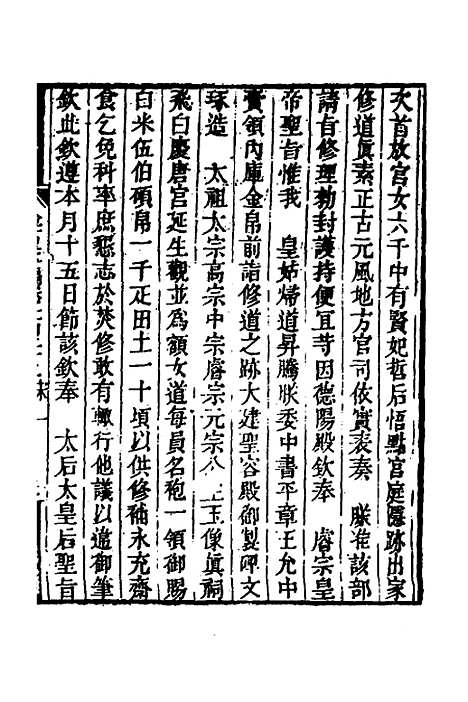 次首放官女六千中有賢妃哲后悟黜官庭隱跡出家
修道眞素正古元風地方官司依實表奏　朕准該部
請旨修理勅封護持便宜等因德陽殿欽奉　睿宗皇
帝聖旨惟我　皇姑帰道昇騰朕委中書平章王允中
賫領內庫金帛前詣修道之跡大建聖容殿御製碑文
琢造　太祖太宗高宗中宗睿宗元宗　玉像眞祠
飛白慶唐宫延生觀並為額女道每員名袍一領御賜
白米伍伯碩帛一千疋田土一十頃以供修䄂永充齋
食乞免科率庶懇志於焚修敢有輙行他議以違御筆
欽此欽遵本月十五日節該欽奉　太后太皇后聖旨